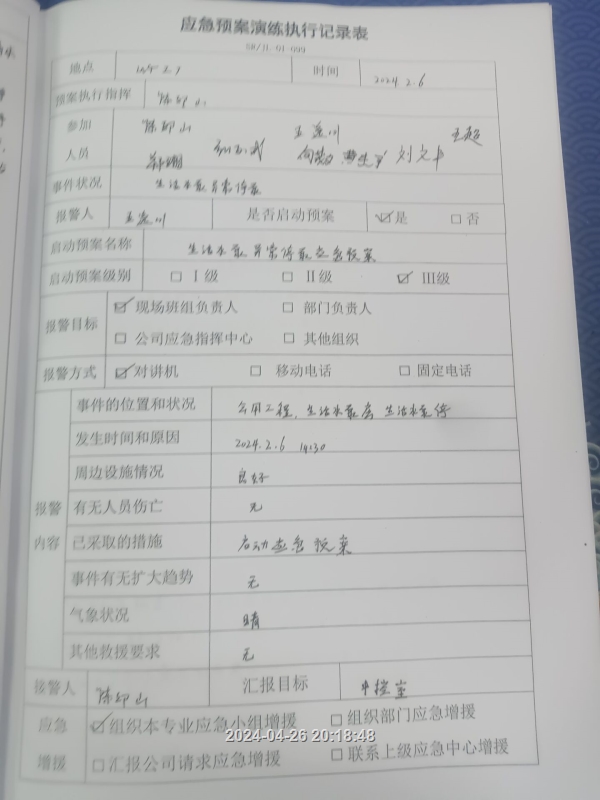 应急预案演练执行记录表
SR/JL-01-099
地点 时间 2024.2.6
预案执行指挥 陈印山
参加 陈印山
人员
事件状况 生活水泵异常停泵
报警人 是否启动预案 ☑是 □否
启动预案名称 生活水泵异常停泵应急预案
启动预案级别 □ I级 □ II级 ☑ III级
报警目标 ☑ 现场班组负责人 □ 部门负责人
□ 公司应急指挥中心 □ 其他组织
报警方式 ☑ 对讲机 □ 移动电话 □ 固定电话
报警内容
事件的位置和状况 公用工程,生活水泵房 生活水泵停
发生时间和原因 2024.2.6 14:30
周边设施情况 良好
有无人员伤亡 无
已采取的措施 启动应急预案
事件有无扩大趋势 无
气象状况 晴
其他救援要求 无
接警人 陈印山 汇报目标 中控室
应急 ☑组织本专业应急小组增援 □组织部门应急增援
2024-04-26 20:18:48
增援 □汇报公司请求应急增援 □联系上级应急中心增援